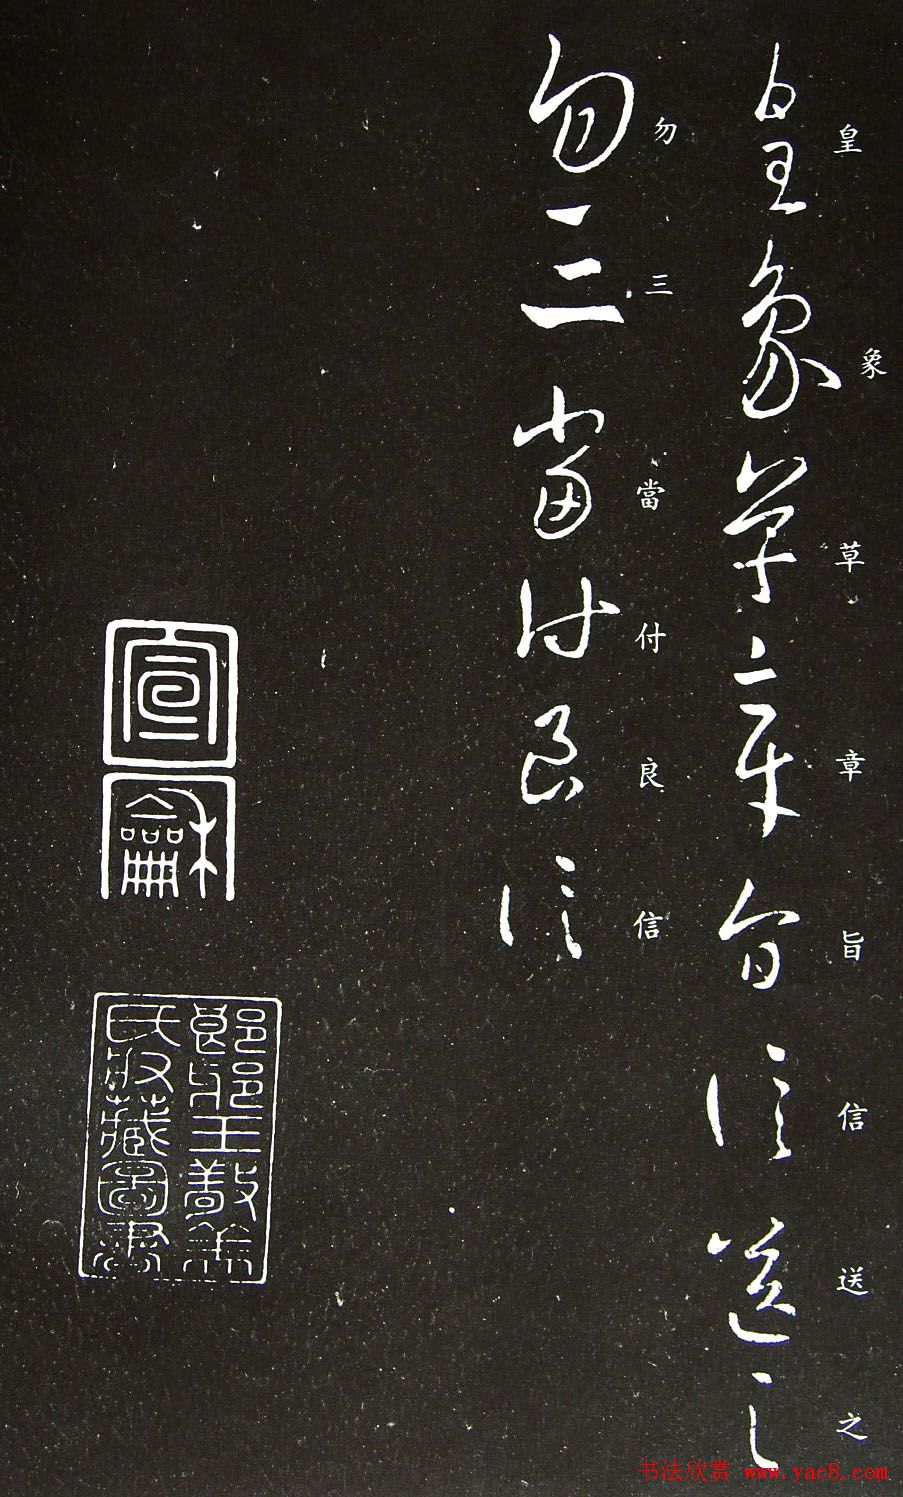 皇象草章旨信送之
勿三當付良信
皇象草章旨信送之
勿三當付良信
宣龢
琅邪王敬美
氏收藏圖書
书法欣赏 www.yac8.com